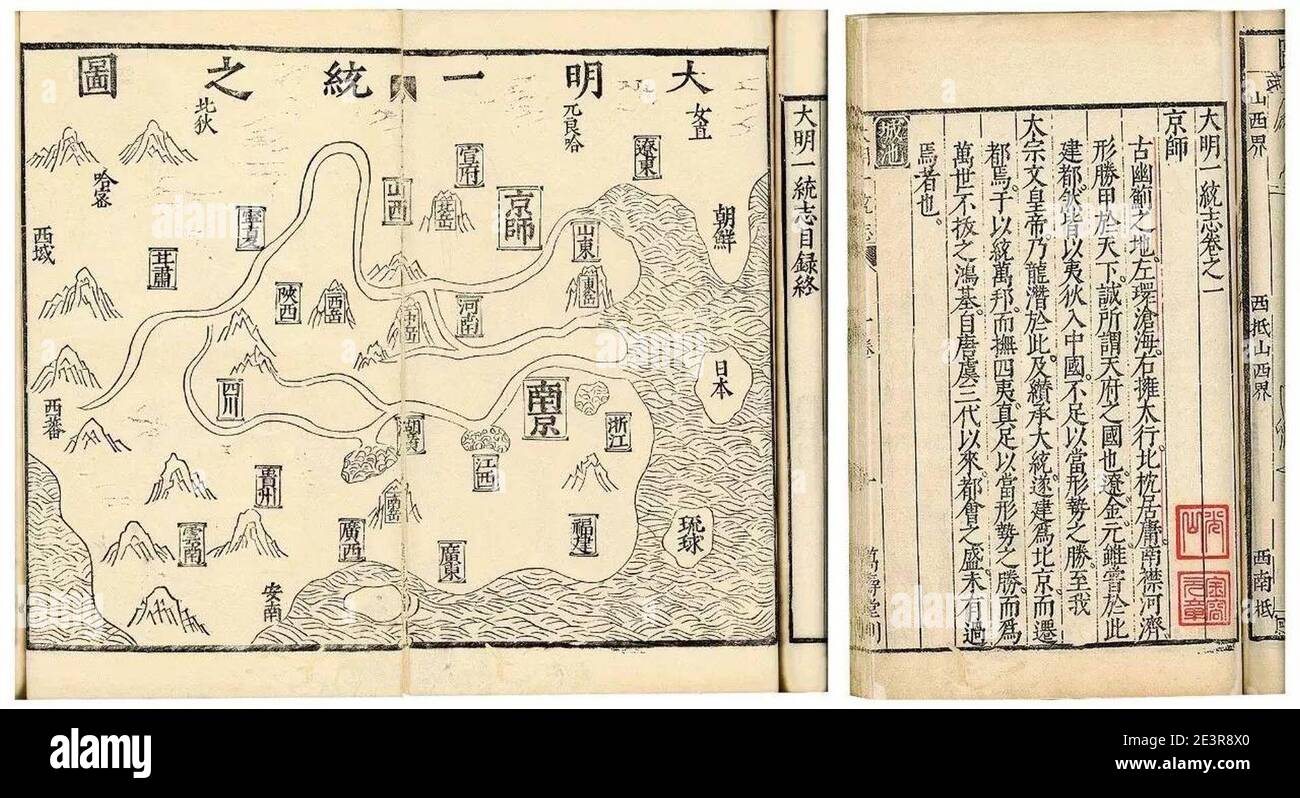 大明一統之圖
女直
遼東
朝鮮
兀良哈
宣府
京師
山東
東岳
北岳
山西
河南
中岳
北狄
寧夏
陝西
西岳
哈密
甘肅
西域
西番
四川
日本
南京
浙江
湖廣
江西
南岳
琉球
福建
廣東
廣西
貴州
雲南
安南
大明一統志目録終
山西界
西抵山西界
西南抵
大明一統志卷之一
京師
古幽薊之地左環滄海右擁太行北枕居庸南襟河濟
形勝甲於天下誠所謂天府之國也遼金元雖嘗於此
建都然皆以夷狄入中國不足以當形勢之勝至我
太宗文皇帝乃龍潛於此及纘承大統遂建爲北京而遷
都焉于以統萬邦而撫四夷真足以當形勢之勝而爲
萬世不拔之鴻基自唐虞三代以來都會之盛未有過
焉者也
城池
萬壽堂刊
alamy
Image ID: 2E3R8X0
www.alamy.com